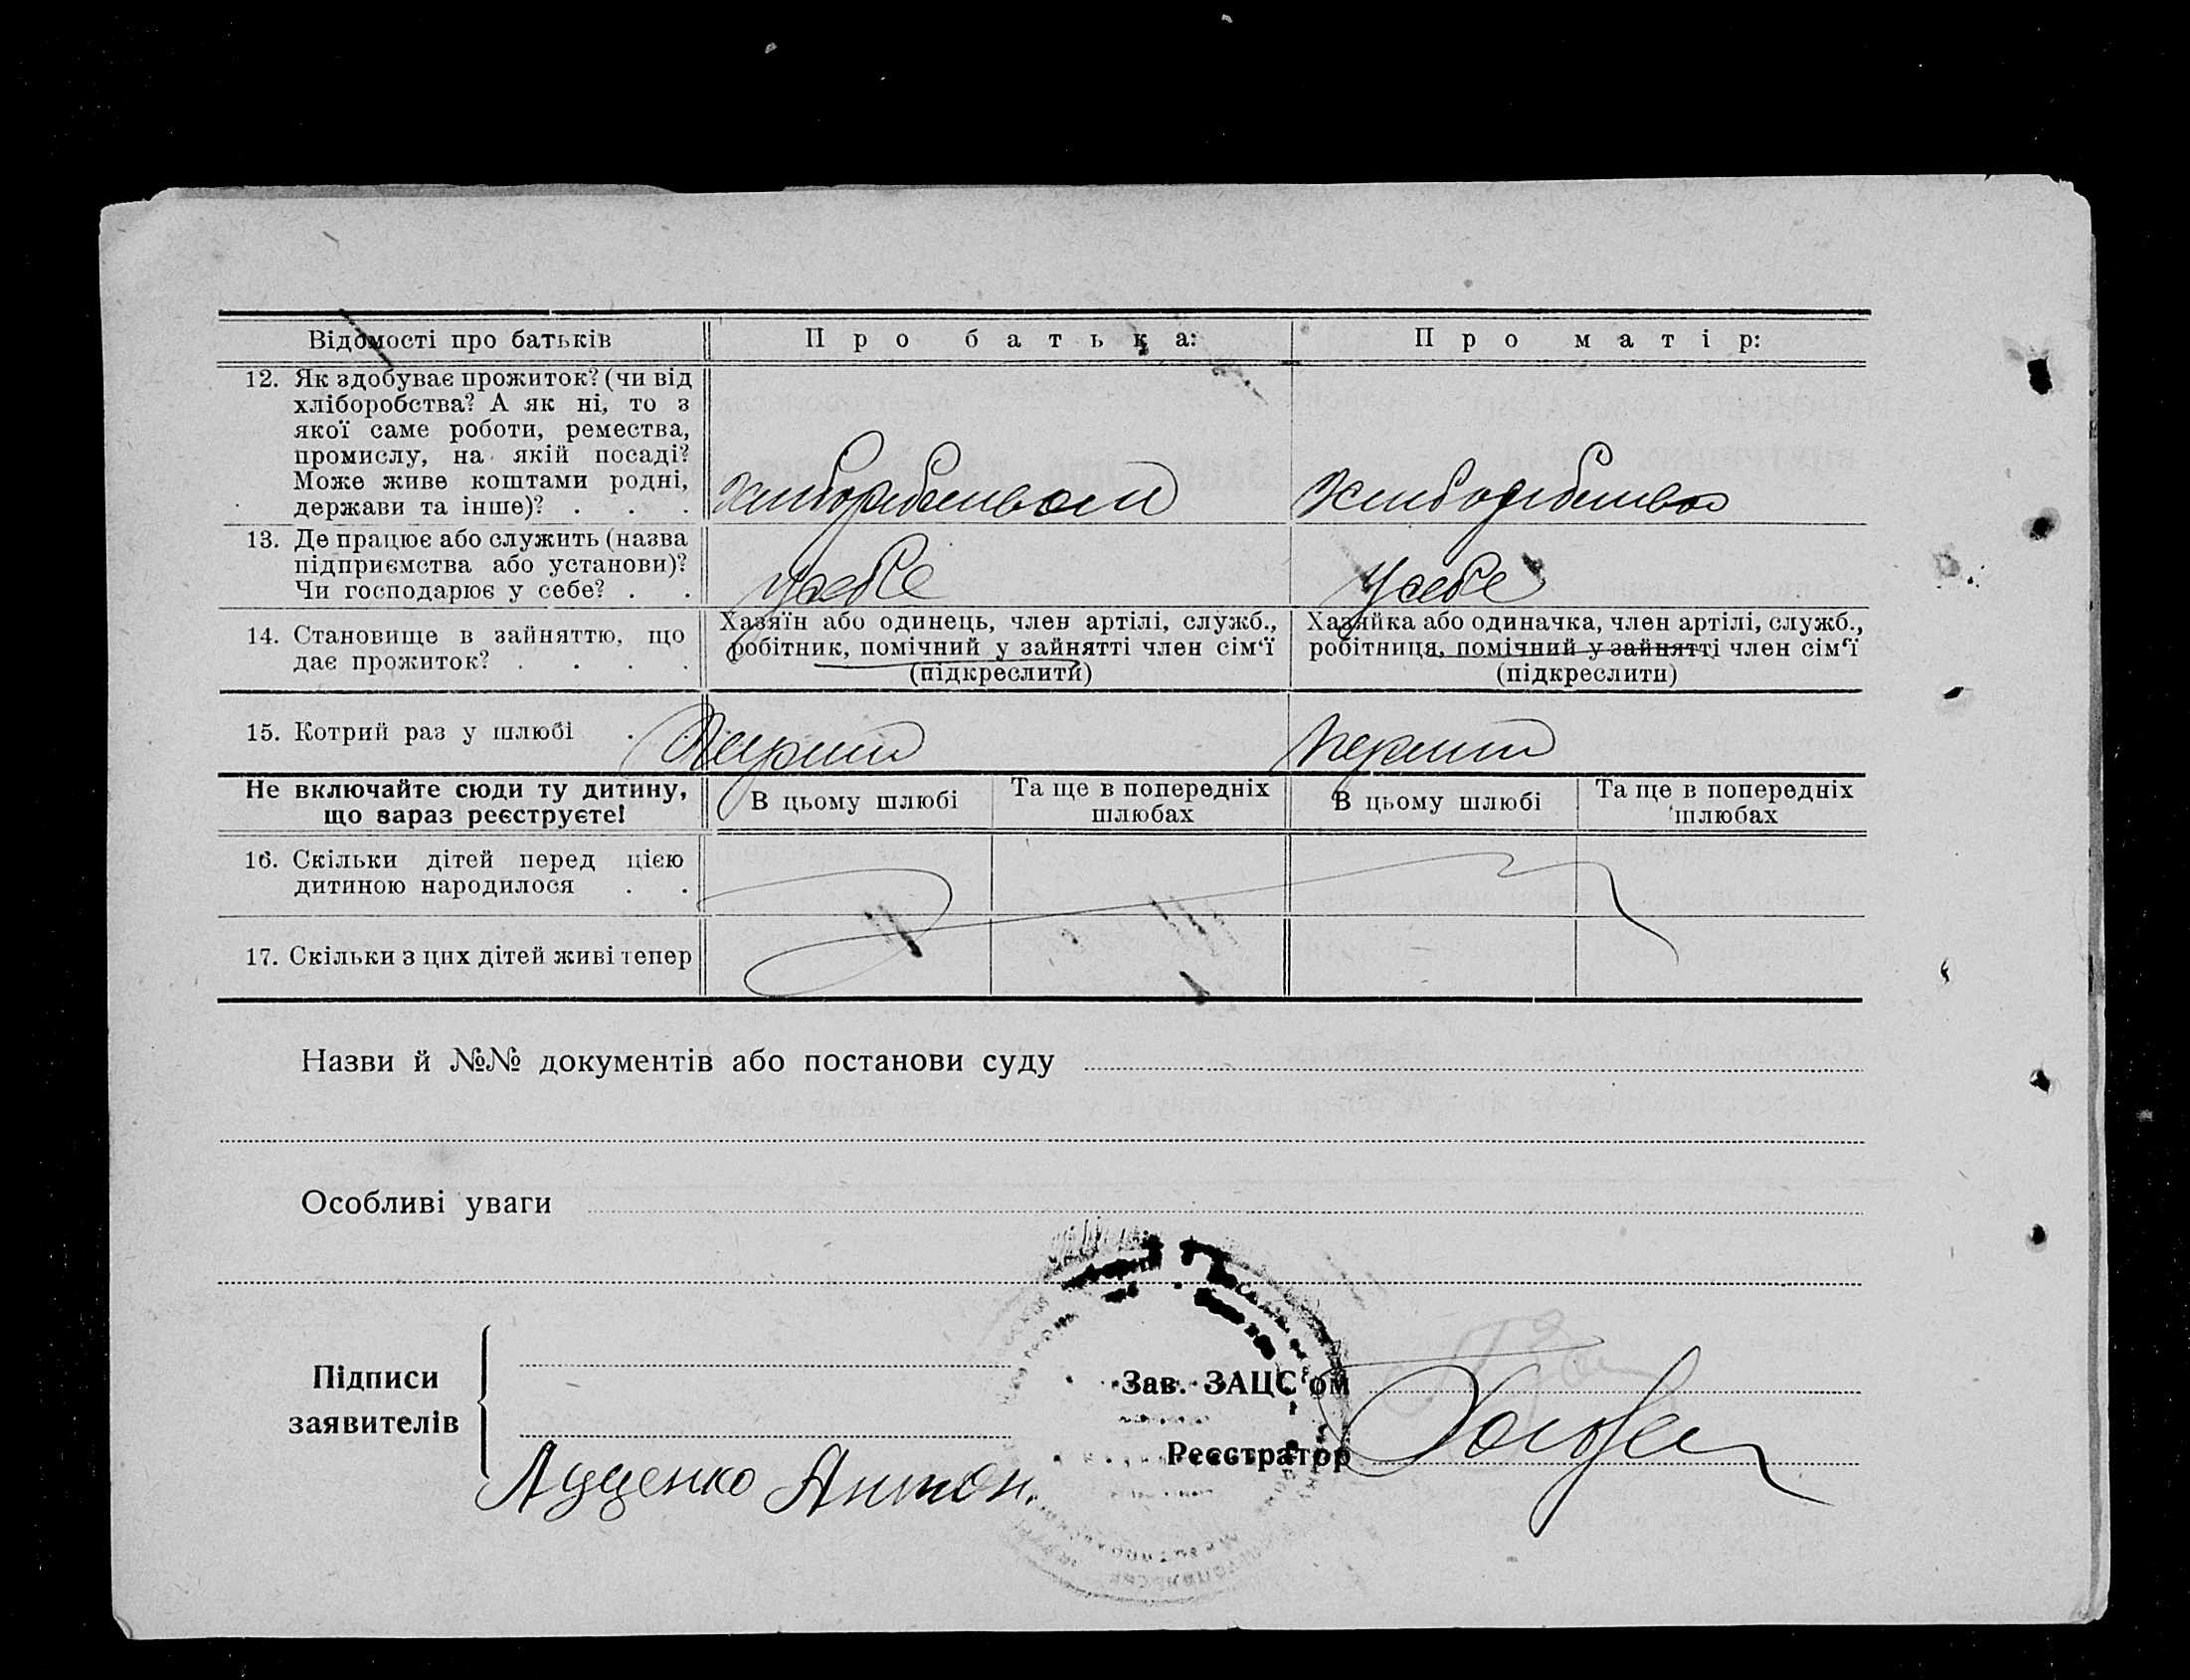 Відомості про батьків
Про батька:
Про матір:
12. Як здобуває прожиток? (чи від
хліборобства? А як ні, то з
якої саме роботи, ремества,
промислу, на якій посаді?
Може живе коштами родні,
держави та інше)? . . .
хліборобством
хліборобство
13. Де працює або служить (назва
підприємства або установи)?
Чи господарює у себе? . .
у себе
у себе
14. Становище в зайняттю, що
дає прожиток? . . . .
Хазяїн або одинець, член артілі, служб.,
робітник, помічний у зайнятті член сім'ї
(підкреслити)
Хазяйка або одиначка, член артілі, служб.,
робітниця, помічний у зайнятті член сім'ї
(підкреслити)
15. Котрий раз у шлюбі .
Перший
Перший
Не включайте сюди ту дитину,
що зараз реєструєте!
В цьому шлюбі
Та ще в попередніх
шлюбах
В цьому шлюбі
Та ще в попередніх
шлюбах
16. Скільки дітей перед цією
дитиною народилося . .
17. Скільки з цих дітей живі тепер
Назви й №№ документів або постанови суду
Особливі уваги
Підписи
заявителів
Луценко Антон.
Зав. ЗАЦС'ом
Реєстратор